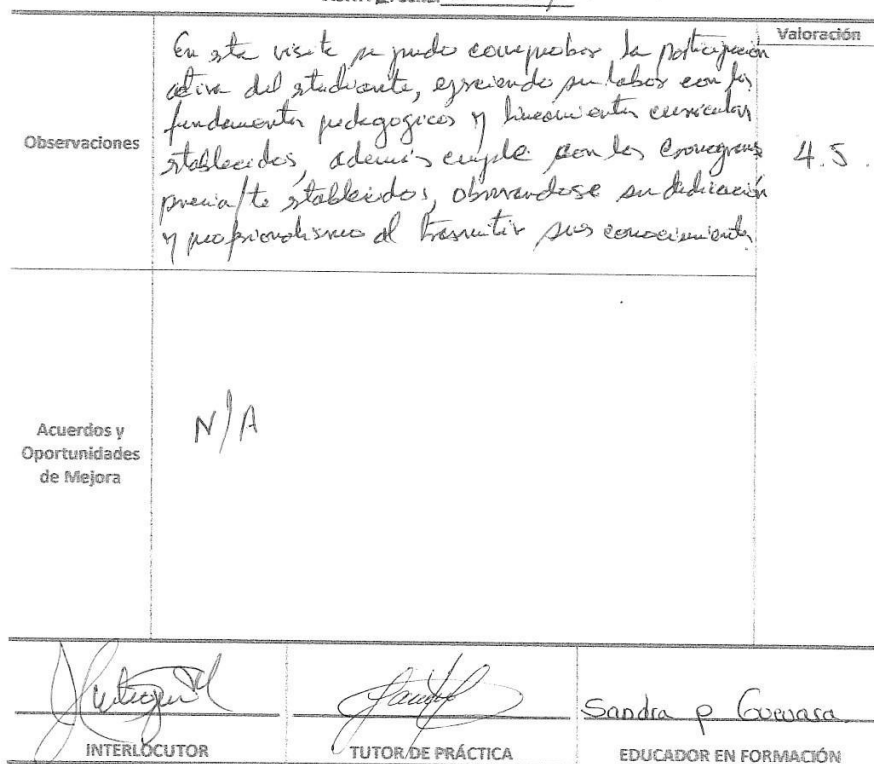 Valoración
Observaciones
En sta visita se pudo comprobar la participación
activa del studiante, ejerciendo su labor con los
fundamentos pedagogicos y lineamientos curriculares
stablecidos, además cumple con los cronogramas
previa/te stablecidos, observandose su dedicación
y profesionalismo al trasmitir sus conocimientos
4.5.
Acuerdos y
Oportunidades
de Mejora
N/A
Sandra p Guevara
INTERLOCUTOR TUTOR DE PRÁCTICA EDUCADOR EN FORMACIÓN